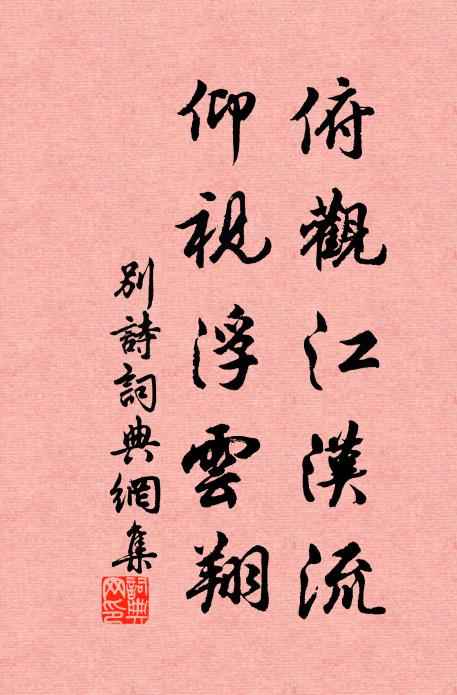 俯觀江漢流
仰視浮雲翔
別詩詞典網集
詞典網印